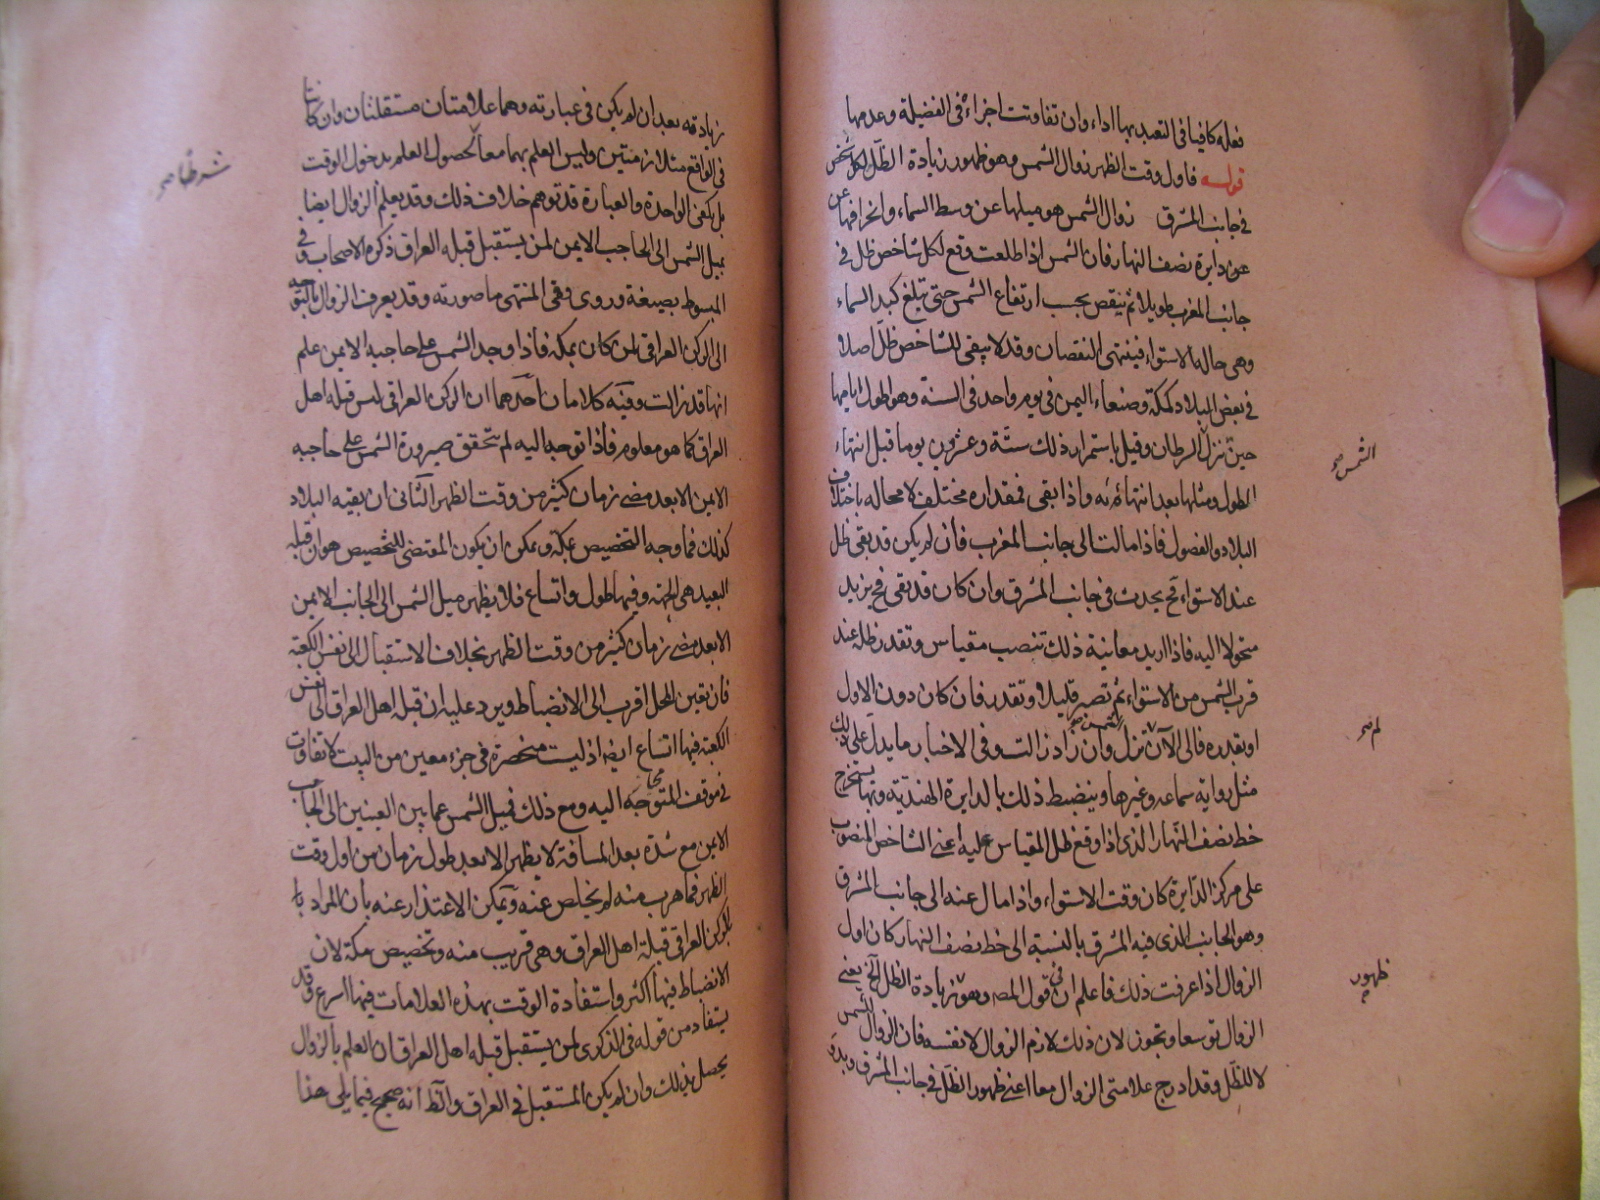 فعله كافيا في التعبد بها اداء وان تفاوتت اجزاءه في الفضيلة وعدمها
قوله فاول وقت الظهر زوال الشمس وهو ظهور زيادة الظل لكل شخص
في جانب المشرق زوال الشمس هو ميلها عن وسط السماء وانحرافها عن
عن دايرة نصف النهار فان الشمس اذا طلعت وقع لكل شاخص ظل في
جانب المغرب طويلا ثم ينقص بحسب ارتفاع الشمس حتى تبلغ كبد السماء
وهي حالة الاستواء فينتهى النقصان وقد لا يبقى للشاخص ظل اصلا
في بعض البلاد كمكة وصنعاء اليمن في يوم واحد في السنة وهو اطول ايامها
حين تنزل السرطان وقيل باستمرار ذلك ستة وعشرين يوما قبل انتهاء
الشمس صح
الطول ومثلها بعد انتهائه واذا بقى فمقداره مختلف لا محاله باختلاف
البلاد والفصول فاذا مالت الى جانب المغرب فان لم يكن قد بقى ظل
عند الاستواء فح يحدث في جانب المشرق وان كان قد بقى فح يزيد
متحولا اليه فاذا اريد معاينة ذلك تنصب مقياس وتقدر ظله عند
قرب الشمس من الاستواء ثم تصبر قليلا وتقدر فان كان دون الاول
او بقدره فالى الآن تزل وان زاد زالت وفي الاخبار ما يدل على ذلك
الشمس صح
لم صح
مثل رواية سماعه وغيرها وينضبط ذلك بالدايرة الهندية وبها يستخرج
خط نصف النهار الذي اذا وقع ظل المقياس عليه اعنى الشاخص المنصوب
على مركز الدايرة كان وقت الاستواء واذا مال عنه الى جانب المشرق
وهو الجانب الذي فيه المشرق بالنسبة الى خط نصف النهار كان اول
الزوال اذا عرفت ذلك فاعلم ان في قول المصه وهو زيادة الظل الخ يعنى
ظهور
الزوال توسعا وتجوز لان ذلك لازم الزوال لا نفسه فان الزوال للشمس
لا للظل وقد ادرج علامتى الزوال معا اعنى ظهور الظل في جانب المشرق وبدو
زيادته بعد ان لم يكن في عبارته وهما علامتان مستقلتان وان كانتا
في الواقع متلازمتين وليس العلم بهما معا لحصول العلم بدخول الوقت
شرطا صح
بل يكفى الواحدة والعبارة قد توهم خلاف ذلك وقد يعلم الزوال ايضا
بميل الشمس الى الحاجب الايمن لمن يستقبل قبلة العراق ذكره الاصحاب وفي
المبسوط بصيغة وروى وفي المنتهى ما صورته وقد يعرف الزوال بالتوجه
الى الركن العراقي لمن كان بمكة فاذا وجد الشمس على حاجبه الايمن علم
انها قد زالت وفيه كلامان احدهما ان الركن العراقي ليس قبلة اهل
العراق كما هو معلوم فاذا توجه اليه لم يتحقق صيرورة الشمس على حاجبه
الايمن الا بعد مضى زمان كثير من وقت الظهر الثاني ان بقيه البلاد
كذلك فما وجه التخصيص بمكة ويمكن ان يكون المقتضى للتخصيص هو ان قبلة
البعيد هي الجهة وفيها طول واتساع فلا يظهر ميل الشمس الى الجانب الايمن
الا بعد مضى زمان كثير من وقت الظهر بخلاف الاستقبال الى نفس الكعبة
فان تعين المحل اقرب الى الانضباط ويرد عليه ان قبلة اهل العراق الى نفس
الكعبة فيها اتساع ايضا اذ ليست منحصرة في جزء معين من البيت لا تفاوت
في موقف المتوجه اليه ومع ذلك فميل الشمس عما بين العينين الى الجانب
الايمن مع شدة بعد المسافة لا يظهر الا بعد طول زمان من اول وقت
الظهر فما هرب منه لم يخلص عنه ويمكن الاعتذار عنه بان المراد با
لركن العراقي قبلة اهل العراق وهي قريب منه وتخصيص مكة لان
الانضباط فيها اكثر واستفادة الوقت بهذه العلامات فيها اسرع وقد
يستفاد من قوله في الذكرى لمن يستقبل قبلة اهل العراق ان العلم بالزوال
يحصل بذلك وان لم يكن المستقبل في العراق والظ انه صحيح فيما يلى هذا